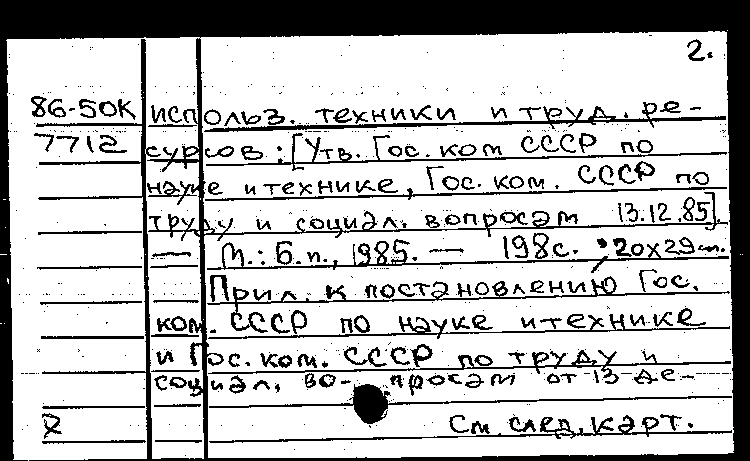 2.
86-50К использ. техники и труд. ре-
7712 сурсов : [Утв. Гос. ком СССР по
науке и технике, Гос. ком. СССР по
труду и социал. вопросам 13.12.85].
— М.: Б.и., 1985. — 198с. ; 20х29 см.
Прил. к постановлению Гос.
ком. СССР по науке и технике
и Гос. ком. СССР по труду и
социал. во- просам от 13 де-
См. след. карт.